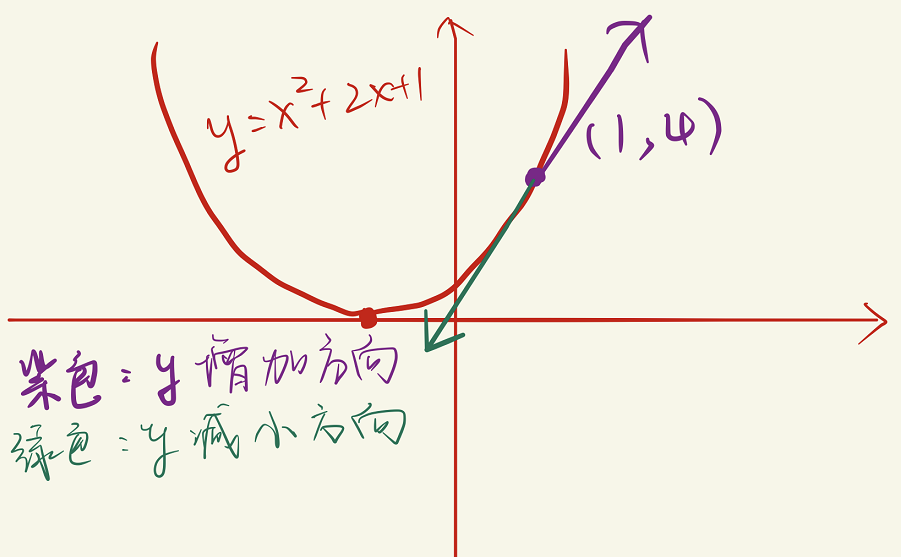 y=x²+2x+1
(1,4)
紫色:y增加方向
绿色:y减小方向